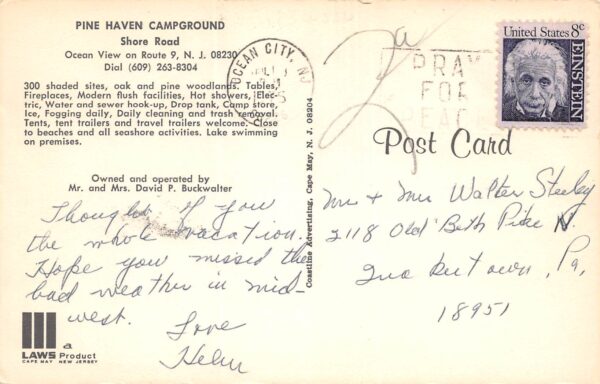 PINE HAVEN CAMPGROUND
Shore Road
Ocean View on Route 9, N. J. 08230
Dial (609) 263-8304
300 shaded sites, oak and pine woodlands, Tables,
Fireplaces, Modern flush facilities, Hot showers, Elec-
tric, Water and sewer hook-up, Drop tank, Camp store,
Ice, Fogging daily, Daily cleaning and trash removal.
Tents, tent trailers and travel trailers welcome. Close
to beaches and all seashore activities. Lake swimming
on premises.
Owned and operated by
Mr. and Mrs. David P. Buckwalter
Thought of you
the whole vacation.
Hope you missed the
bad weather in mid-
west.
Love
Helen
a
LAWS Product
CAPE MAY NEW JERSEY
Coastline Advertising, Cape May, N. J. 08204
OCEAN CITY, NJ
PRAY
FOR
PEACE
United States 8c
EINSTEIN
Post Card
Mr + Mrs Walter
2118 Old Beth Pike N.
Quakertown, Pa,
18951